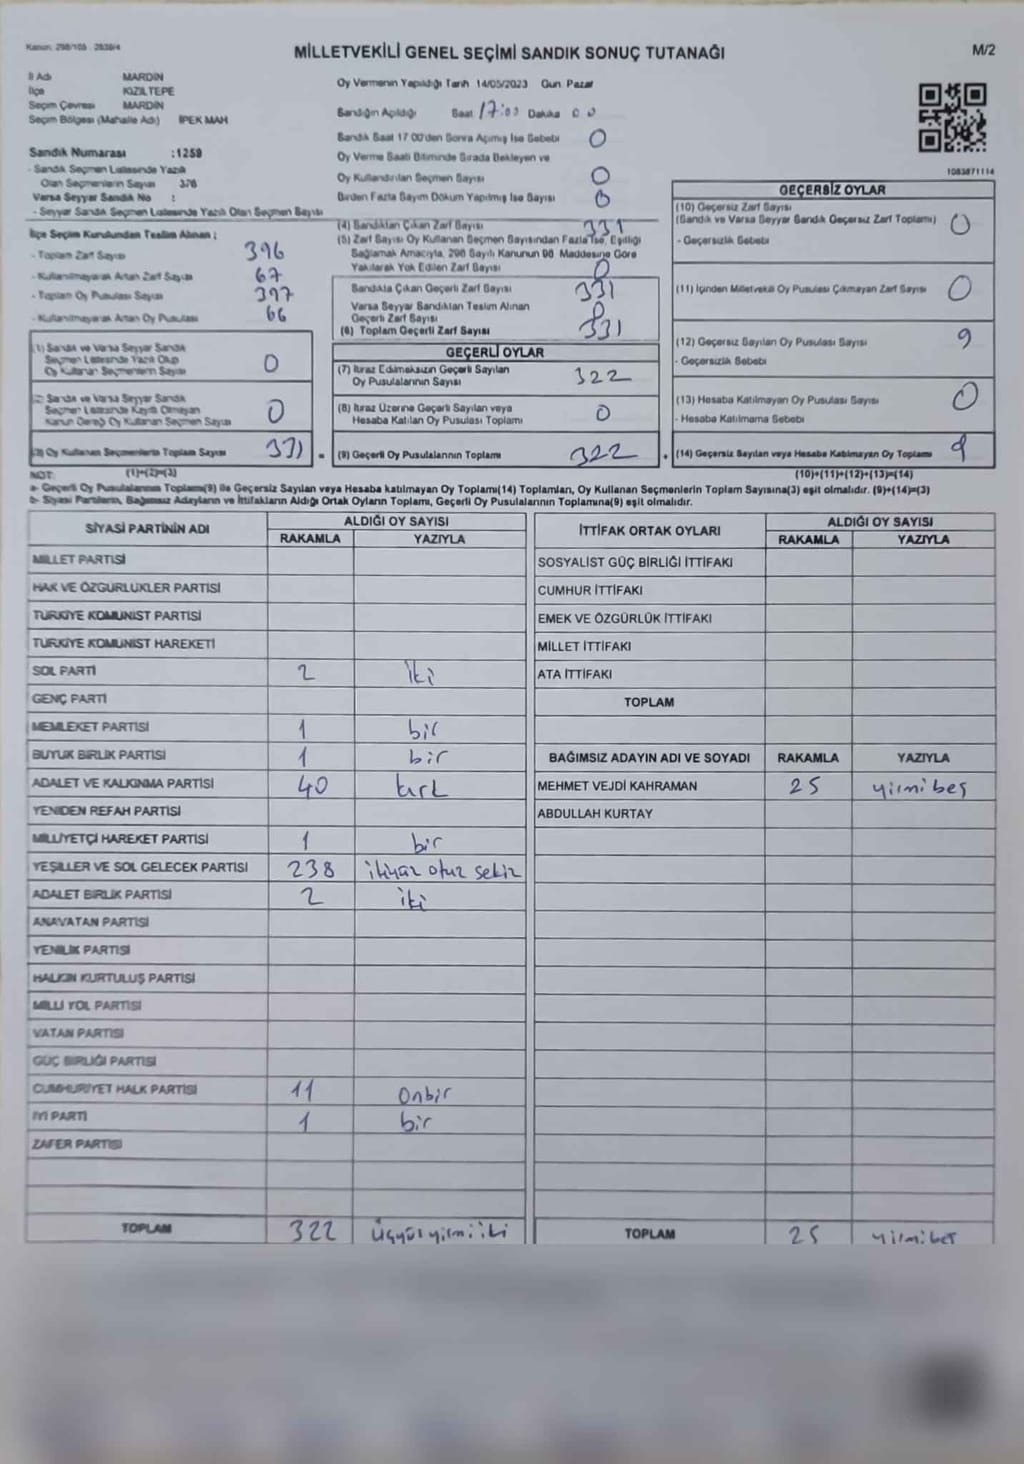 Kanun: 298/105 - 2839/4
MİLLETVEKİLİ GENEL SEÇİMİ SANDIK SONUÇ TUTANAĞI
M/2
İl Adı MARDİN
İlçe KIZILTEPE
Seçim Çevresi MARDİN
Seçim Bölgesi (Mahalle Adı) İPEK MAH
Sandık Numarası :1259
- Sandık Seçmen Listesinde Yazılı
Olan Seçmenlerin Sayısı 376
Varsa Seyyar Sandık No :
- Seyyar Sandık Seçmen Listesinde Yazılı Olan Seçmen Sayısı
İlçe Seçim Kurulundan Teslim Alınan ;
- Toplam Zarf Sayısı 396
- Kullanılmayarak Artan Zarf Sayısı 67
- Toplam Oy Pusulası Sayısı 397
- Kullanılmayarak Artan Oy Pusulası 66
(1) Sandık ve Varsa Seyyar Sandık
Seçmen Listesinde Yazılı Olup
Oy Kullanan Seçmenlerin Sayısı 0
(2) Sandık ve Varsa Seyyar Sandık
Seçmen Listesinde Kayıtlı Olmayan
Kanun Gereği Oy Kullanan Seçmen Sayısı 0
(3) Oy Kullanan Seçmenlerin Toplam Sayısı 331 =
(1)+(2)=(3)
Oy Vermenin Yapıldığı Tarih 14/05/2023 Gün Pazar
Sandığın Açıldığı Saat 17:00 Dakika 00
Sandık Saat 17:00'den Sonra Açılmış İse Sebebi 0
Oy Verme Saati Bitiminde Sırada Bekleyen ve
Oy Kullandırılan Seçmen Sayısı 0
Birden Fazla Sayım Döküm Yapılmış İse Sayısı 0
(4) Sandıktan Çıkan Zarf Sayısı 331
(5) Zarf Sayısı Oy Kullanan Seçmen Sayısından Fazla İse, Eşitliği
Sağlamak Amacıyla, 298 Sayılı Kanunun 98. Maddesine Göre
Yakılarak Yok Edilen Zarf Sayısı 0
Sandıkta Çıkan Geçerli Zarf Sayısı 331
Varsa Seyyar Sandıktan Teslim Alınan
Geçerli Zarf Sayısı 0
(6) Toplam Geçerli Zarf Sayısı 331
GEÇERLİ OYLAR
(7) İtiraz Edilmeksizin Geçerli Sayılan
Oy Pusulalarının Sayısı 322
(8) İtiraz Üzerine Geçerli Sayılan veya
Hesaba Katılan Oy Pusulası Toplamı 0
(9) Geçerli Oy Pusulalarının Toplamı 322 +
1083871114
GEÇERSİZ OYLAR
(10) Geçersiz Zarf Sayısı
(Sandık ve Varsa Seyyar Sandık Geçersiz Zarf Toplamı) 0
- Geçersizlik Sebebi
(11) İçinden Milletvekili Oy Pusulası Çıkmayan Zarf Sayısı 0
(12) Geçersiz Sayılan Oy Pusulası Sayısı 9
- Geçersizlik Sebebi
(13) Hesaba Katılmayan Oy Pusulası Sayısı 0
- Hesaba Katılmama Sebebi
(14) Geçersiz Sayılan veya Hesaba Katılmayan Oy Toplamı 9
(10)+(11)+(12)+(13)=(14)
NOT:
a- Geçerli Oy Pusulalarının Toplamı(9) ile Geçersiz Sayılan veya Hesaba katılmayan Oy Toplamı(14) Toplamları, Oy Kullanan Seçmenlerin Toplam Sayısına(3) eşit olmalıdır. (9)+(14)=(3)
b- Siyasi Partilerin, Bağımsız Adayların ve İttifakların Aldığı Ortak Oyların Toplamı, Geçerli Oy Pusulalarının Toplamına(9) eşit olmalıdır.
SİYASİ PARTİNİN ADI
ALDIĞI OY SAYISI
RAKAMLA YAZIYLA
MİLLET PARTİSİ
HAK VE ÖZGÜRLÜKLER PARTİSİ
TÜRKİYE KOMÜNİST PARTİSİ
TÜRKİYE KOMÜNİST HAREKETİ
SOL PARTİ 2 iki
GENÇ PARTİ
MEMLEKET PARTİSİ 1 bir
BÜYÜK BİRLİK PARTİSİ 1 bir
ADALET VE KALKINMA PARTİSİ 40 kırk
YENİDEN REFAH PARTİSİ
MİLLİYETÇİ HAREKET PARTİSİ 1 bir
YEŞİLLER VE SOL GELECEK PARTİSİ 238 ikiyüz otuz sekiz
ADALET BİRLİK PARTİSİ 2 iki
ANAVATAN PARTİSİ
YENİLİK PARTİSİ
HALKIN KURTULUŞ PARTİSİ
MİLLİ YOL PARTİSİ
VATAN PARTİSİ
GÜÇ BİRLİĞİ PARTİSİ
CUMHURİYET HALK PARTİSİ 11 Onbir
İYİ PARTİ 1 bir
ZAFER PARTİSİ
TOPLAM 322 Üçyüz yirmi iki
İTTİFAK ORTAK OYLARI
ALDIĞI OY SAYISI
RAKAMLA YAZIYLA
SOSYALİST GÜÇ BİRLİĞİ İTTİFAKI
CUMHUR İTTİFAKI
EMEK VE ÖZGÜRLÜK İTTİFAKI
MİLLET İTTİFAKI
ATA İTTİFAKI
TOPLAM
BAĞIMSIZ ADAYIN ADI VE SOYADI RAKAMLA YAZIYLA
MEHMET VEJDİ KAHRAMAN 25 yirmi beş
ABDULLAH KURTAY
TOPLAM 25 yirmi beş